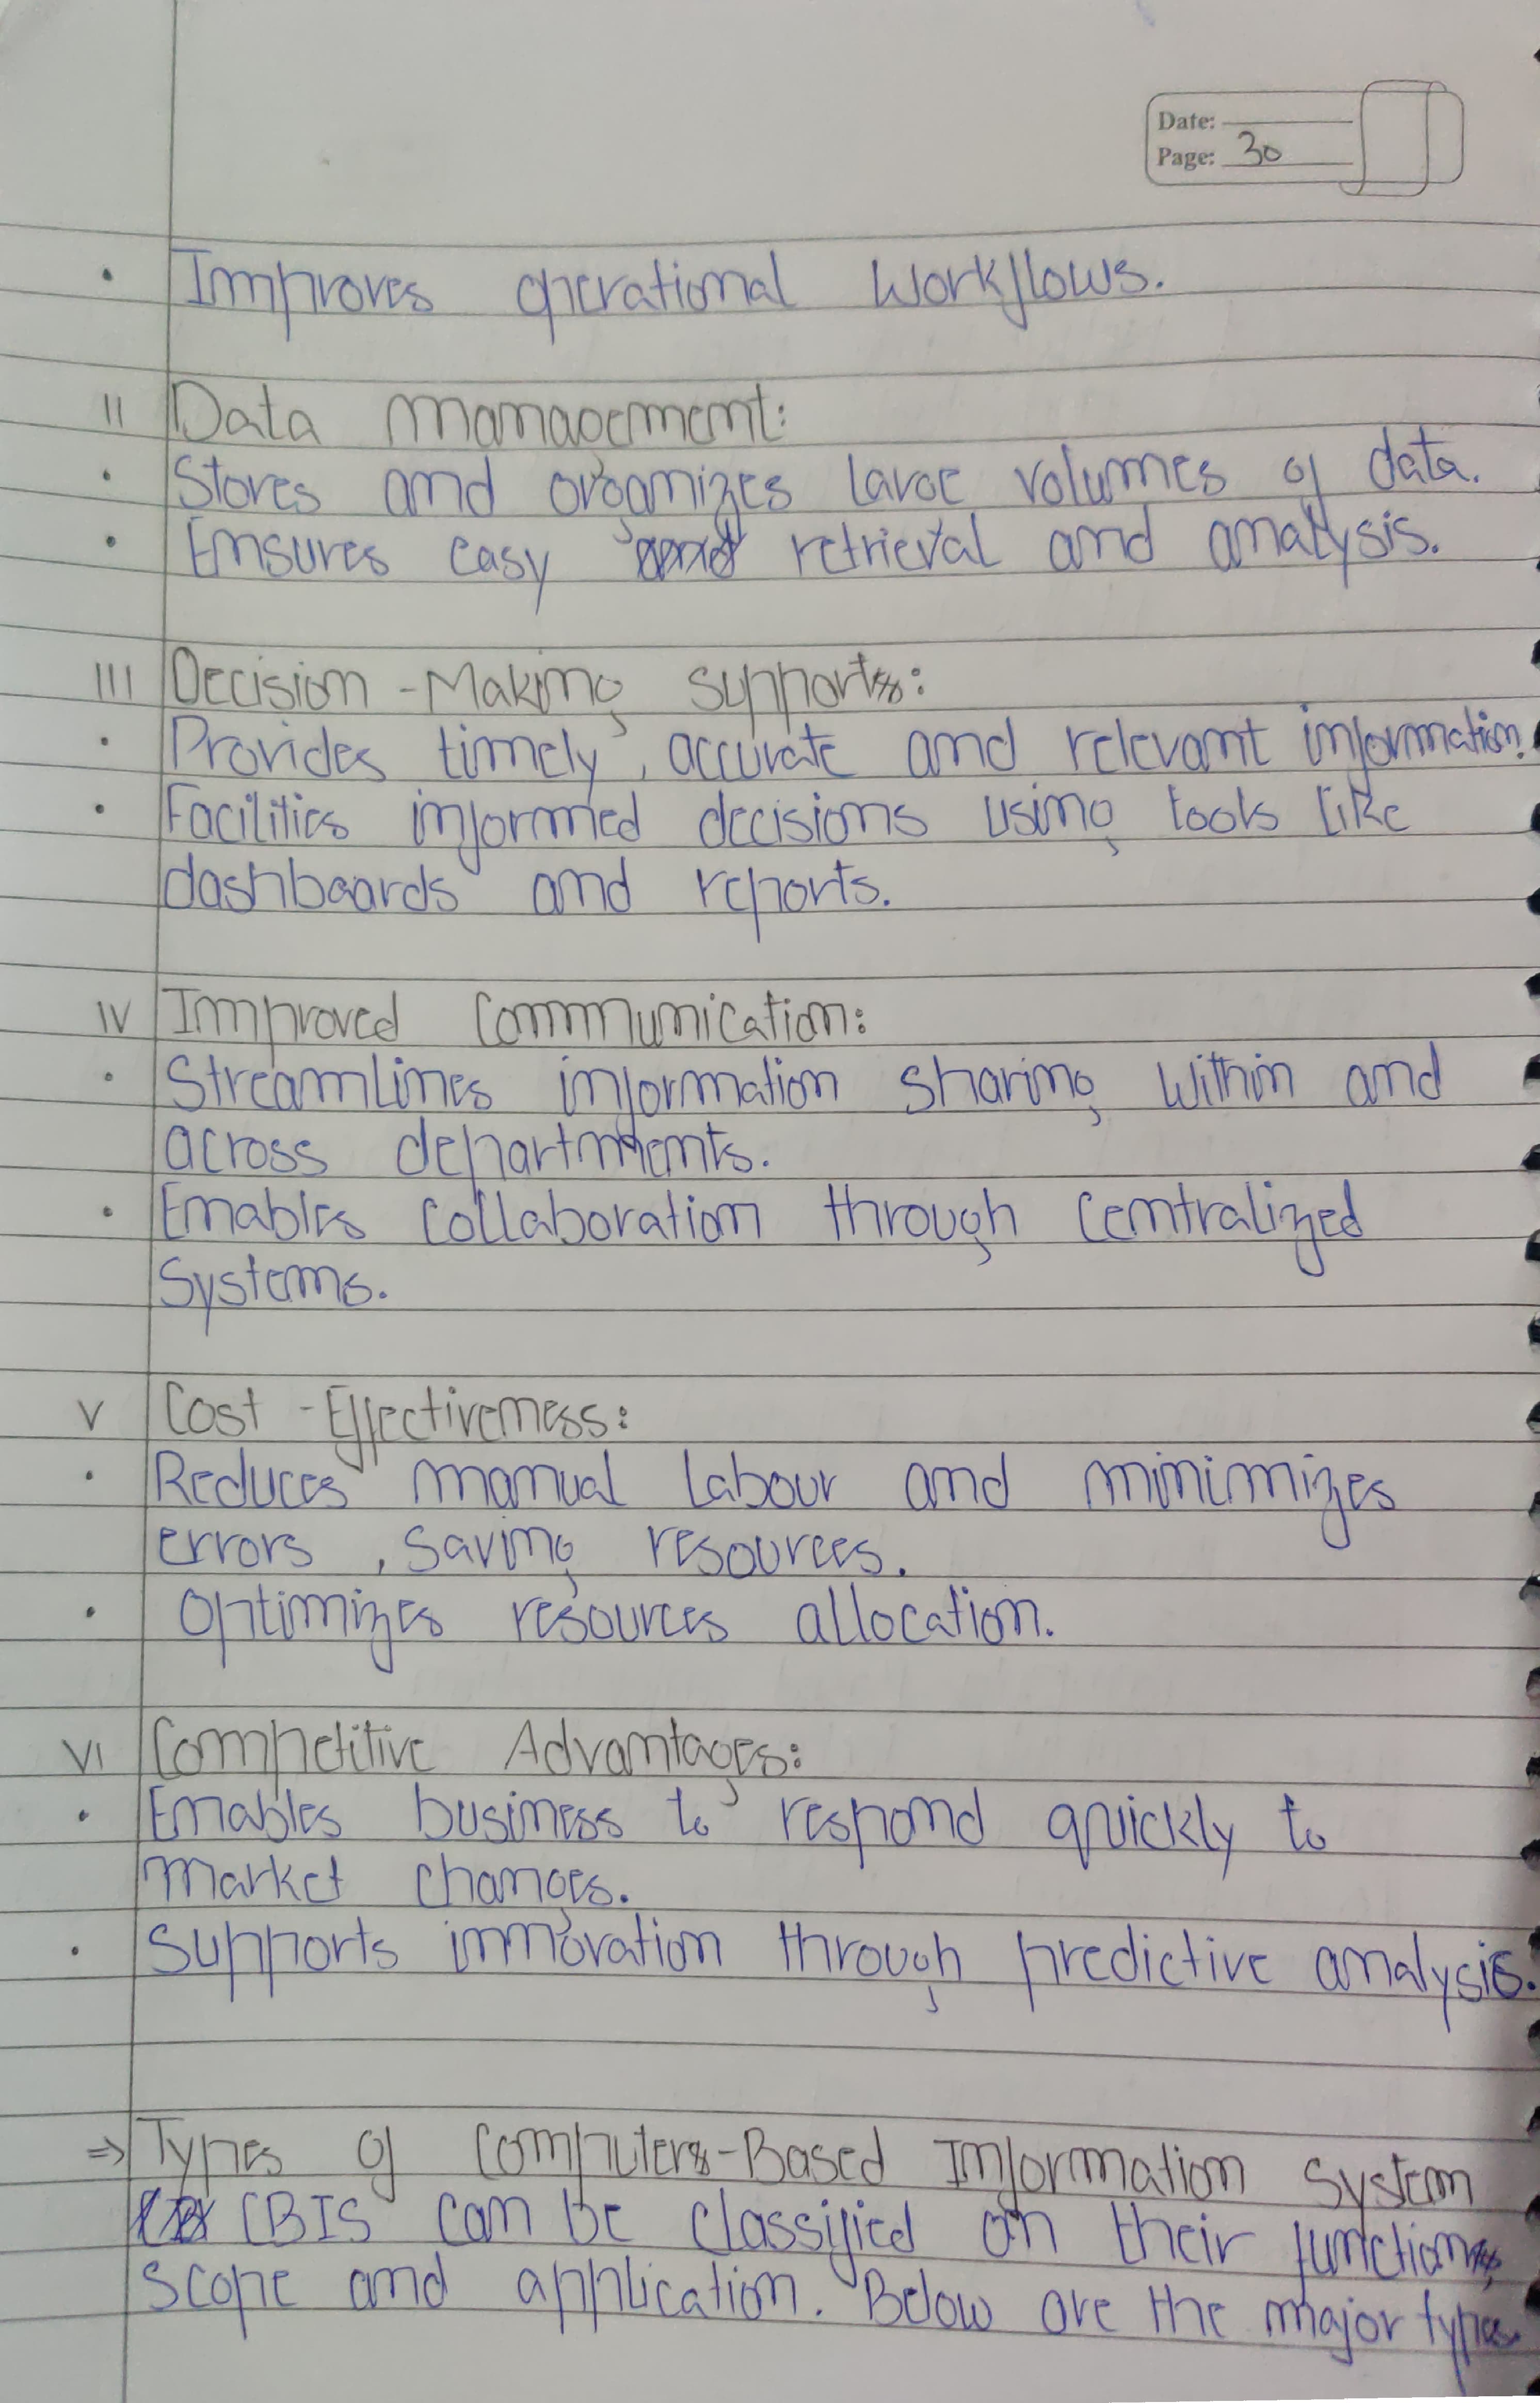 Date:
Page: 30
• Improves operational workflows.
II Data management:
• Stores and organizes large volumes of data.
• Ensures easy retrieval and analysis.
III Decision-Making support:
• Provides timely, accurate and relevant information.
• Facilities informed decisions using tools like
dashboards and reports.
IV Improved Communication:
• Streamlines information sharing within and
across departments.
• Enables collaboration through centralized
systems.
V Cost-Effectiveness:
• Reduces manual labour and minimizes
errors, saving resources.
• Optimizes resources allocation.
VI Competitive Advantages:
• Enables business to respond quickly to
market changes.
• Supports innovation through predictive analysis.
⇒ Types of Computer-Based Information System
CBIS can be classified on their function,
scope and application. Below are the major types